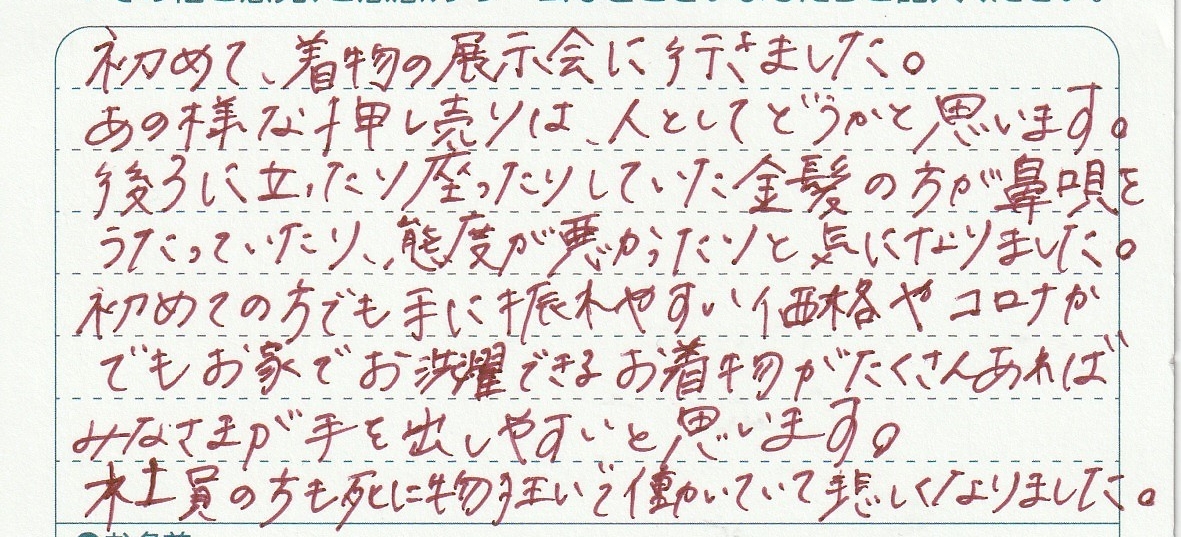 初めて、着物の展示会に行きました。
あの様な押し売りは、人としてどうかと思います。
後ろに立ったり座ったりしていた金髪の方が鼻唄を
うたっていたり、態度が悪かったりと気になりました。
初めての方でも手に振れやすい価格や コロナか
でもお家でお洗濯できるお着物がたくさんあれば
みなさまが手を出しやすいと思います。
社員の方も死に物狂いで働いていて悲しくなりました。